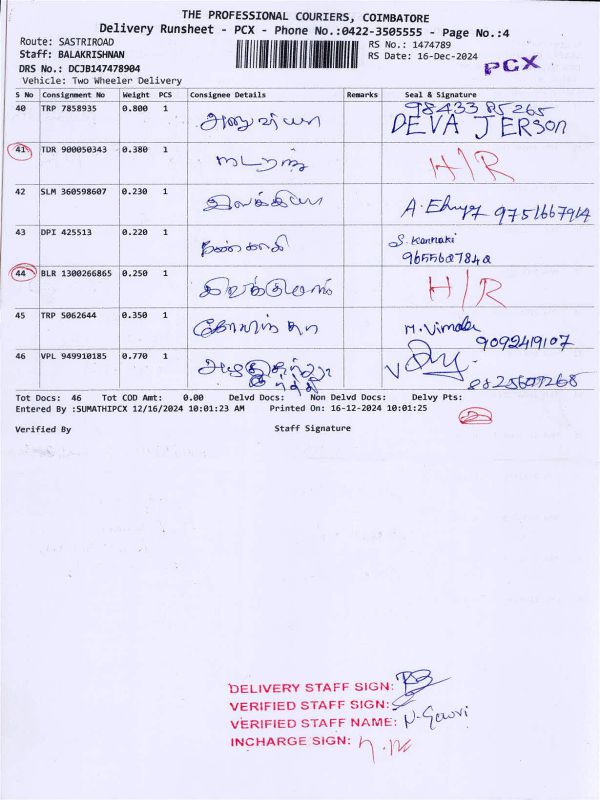 THE PROFESSIONAL COURIERS, COIMBATORE
Delivery Runsheet - PCX - Phone No.:0422-3505555 - Page No.:4
Route: SASTRIROAD RS No.: 1474789
Staff: BALAKRISHNAN RS Date: 16-Dec-2024
DRS No.: DCJB147478904 PCX
Vehicle: Two Wheeler Delivery
S No Consignment No Weight PCS Consignee Details Remarks Seal & Signature
40 TRP 7858935 0.800 1 9843385265
DEVA JERSON
41 TDR 900050343 0.380 1 H/R
42 SLM 360598607 0.230 1 இலக்கியா 9751667914
43 DPI 425513 0.220 1 S. Kannaki
9655627842
44 BLR 1300266865 0.250 1 H/R
45 TRP 5062644 0.350 1 M. Vimala
9092419107
46 VPL 949910185 0.770 1
Tot Docs: 46 Tot COD Amt: 0.00 Delvd Docs: Non Delvd Docs: Delvy Pts:
Entered By :SUMATHIPCX 12/16/2024 10:01:23 AM Printed On: 16-12-2024 10:01:25
2
Verified By Staff Signature
DELIVERY STAFF SIGN:
VERIFIED STAFF SIGN:
VERIFIED STAFF NAME: N. Gowri
INCHARGE SIGN: